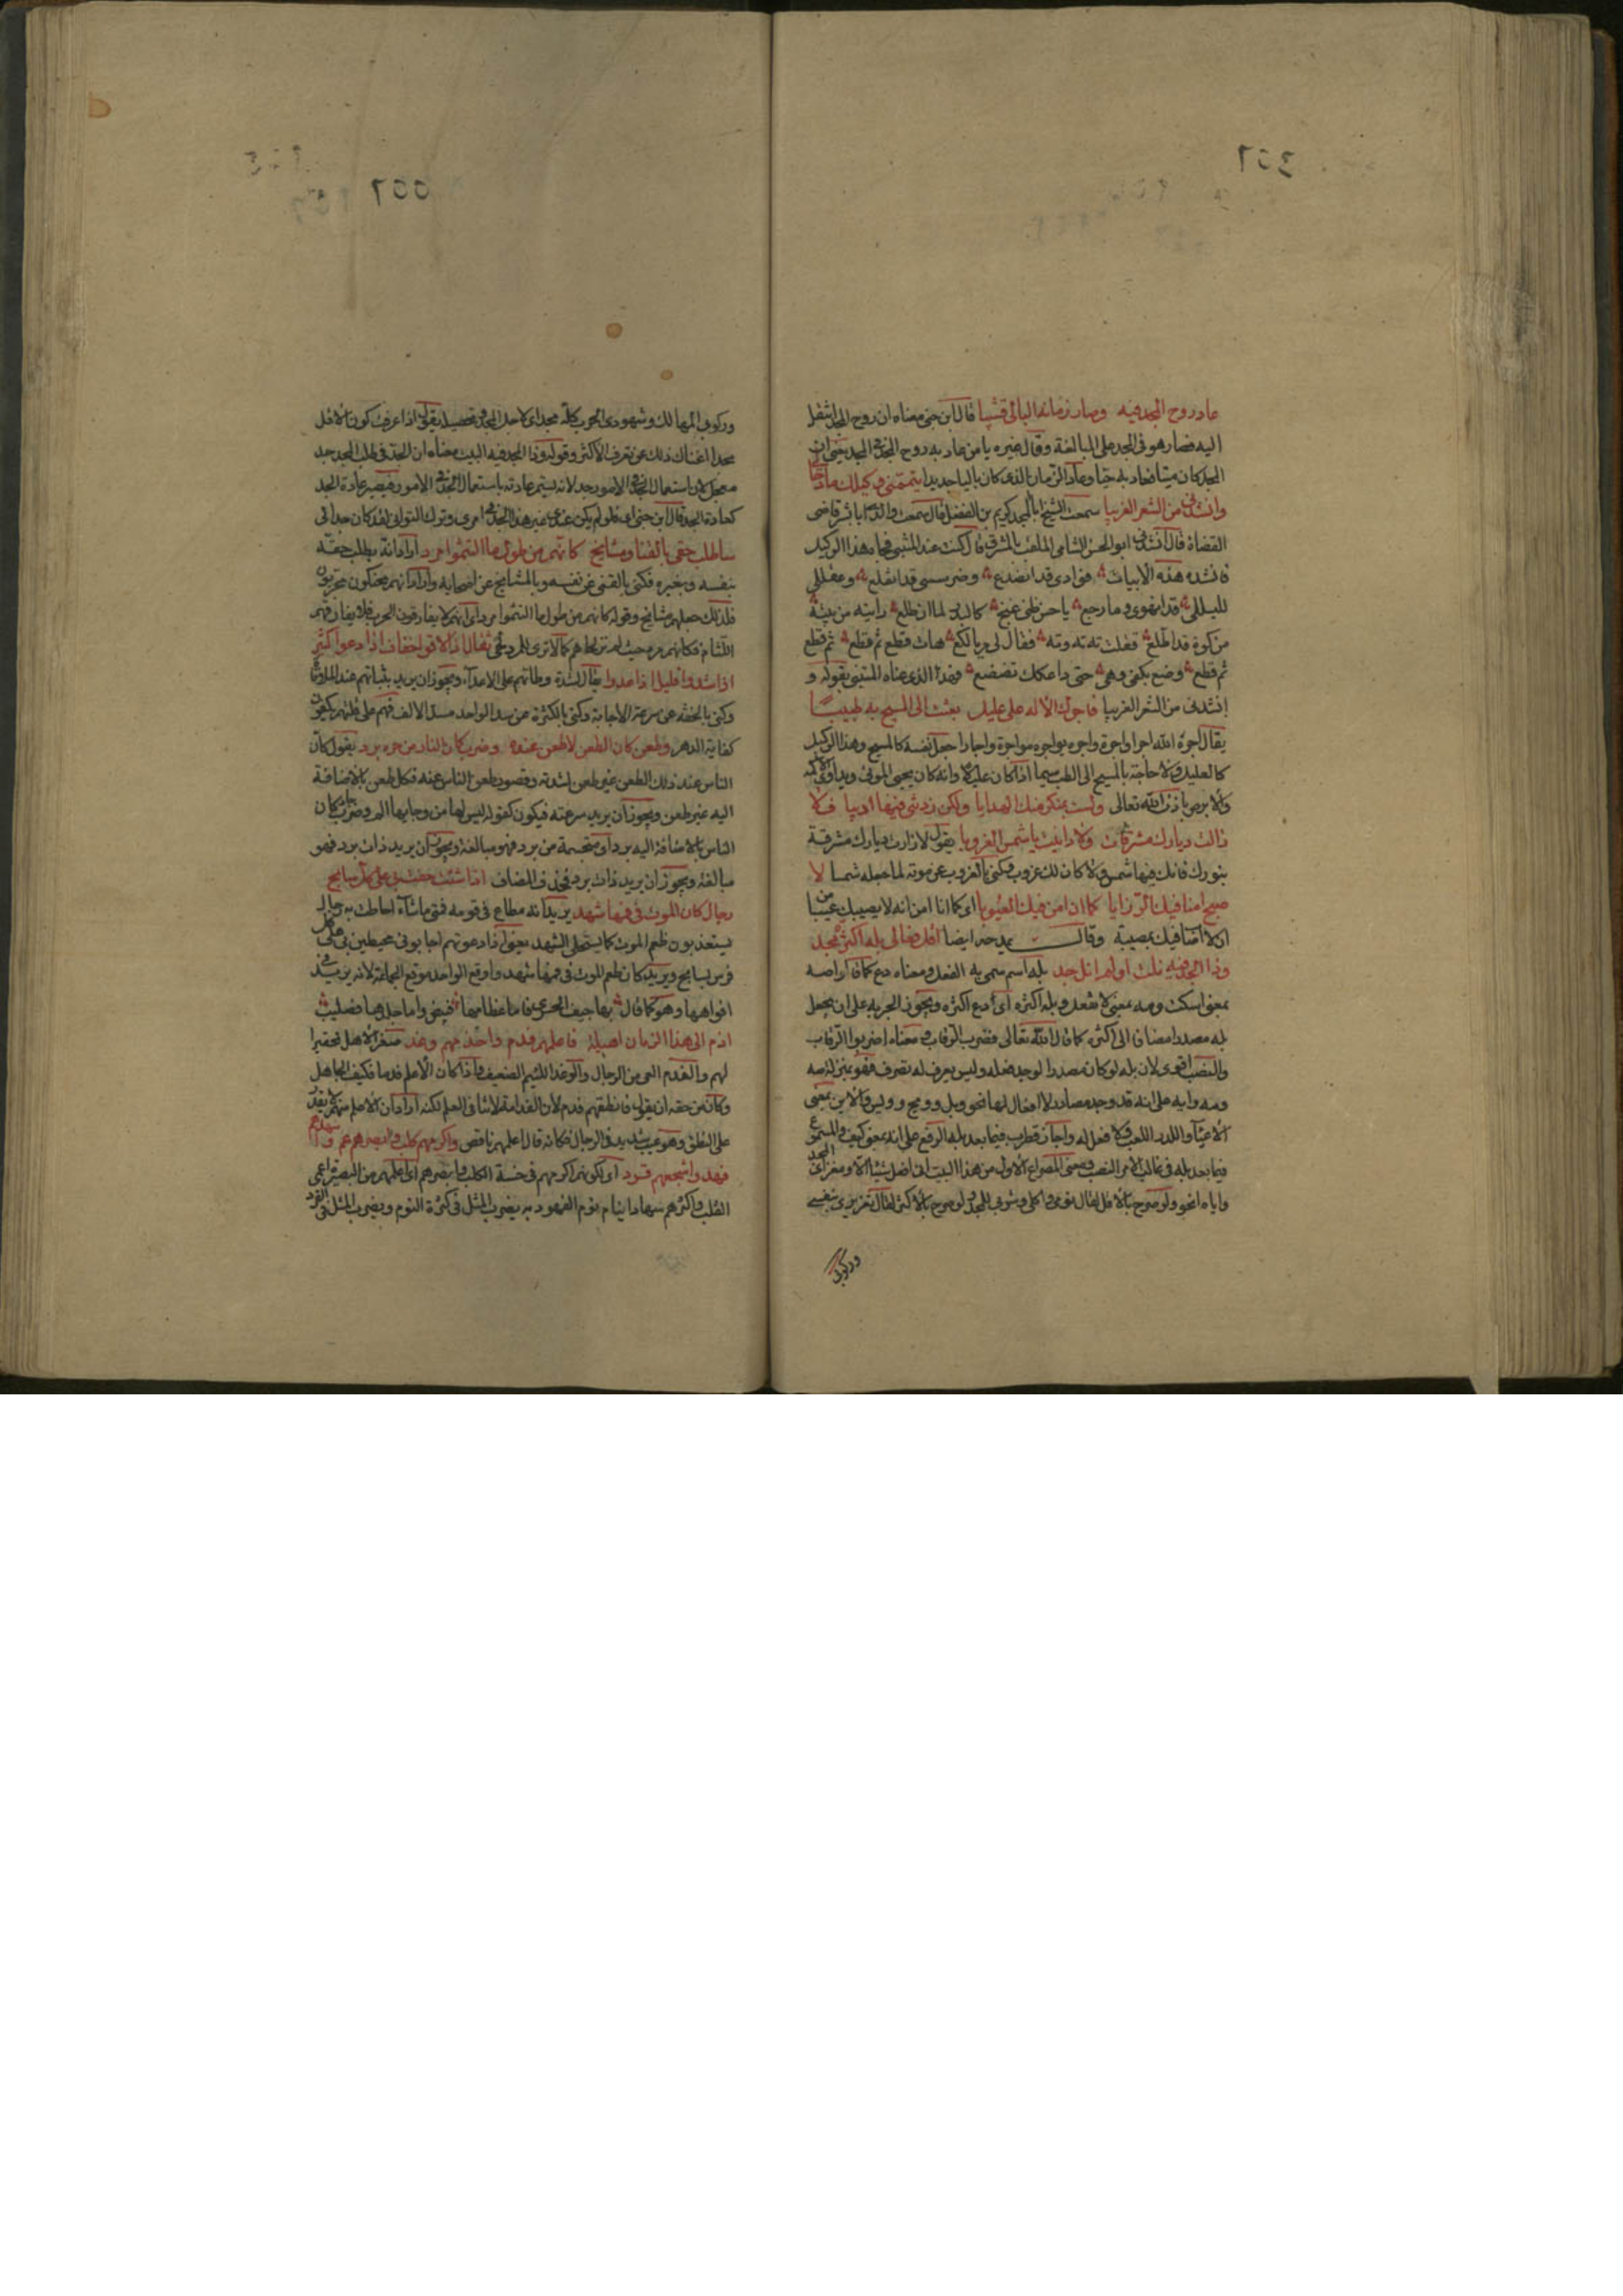 عاد روح المجد فيه وصار زمانه البالى قشيبا قال ابن جنى معناه ان روح المجد انتقل
اليه فصار هو فى المجد على المبالغة وقال غيره يا من عاد به روح المجد فى المجد يعنى ان
المجد كان ميتا فعاد به حيا وعاد الزمان الذى كان باليا جديدا تيممنى وكيلك مادحا
وانشدنى من الشعر الغريبا سمعت الشيخ ابا المجد كريم بن الفضل قال سمعت والدى ابا بشر قاضى
القضاة قال انشدنى ابو الحسن الشامى الملقب بالمشرق قال كنت عند المتنبى فجاءه هذا الوكيل
فانشده هذه الابيات فوادى قد انصدع وضرسى قد انقلع وعقل لى
لليلى قد انهوى وما رجع يا حسن ظبى غنج كالبدر لما ان طلع رايته من بيته
من كوة قد اطلع فقلت ته ته وته فقال لى مر يا لكع هات قطع ثم قطع ثم قطع
ثم قطع وضع بكفى وهى حتى داعكك تضعضع فهذا الذى عناه المتنبى بقوله و
انشدنى من الشعر الغريبا فاجرك الاله على عليل بعثت الى المسيح به طبيبا
يقال اجره الله اجرا واجرة واجره يواجره مواجرة واجارا جعل نفسه كالمسيح وهذا الوكيل
كالعليل ولا حاجة بالمسيح الى الطب سيما اذا كان عليلا وانه كان يحيى الموتى ويداوى الاكمه
والابرص باذن الله تعالى ولست بمنكر منك الهدايا ولكن زدتنى فيها اديبا فلا
زالت ديارك مشرقات ولا دانيت يا شمس الغروبا يقول لا زالت ديارك مشرقة
بنورك فانك فيها شمس ولا كان لك غروب وكنى بالغروب عن موته لما جعله شمسا لا
صبح امنا فيك الرزايا كما ان امن فيك العيوبا اى كما انا امن انه لا يصيبك عيب
ان لا اصاب فيك بمصيبة وقال يمدحه ايضا اقل فعالى بله اكثره مجد
وذا الجد فيه نلت او لم انل جد بله اسم سمى به الفعل ومعناه دع كما قالوا صه
بمعنى اسكت ومه بمعنى لا تفعل وبله اكثره اى دع اكثره ويجوز الجر به على ان يجعل
بله مصدرا مضافا الى اكثره كما قال الله تعالى فضرب الرقاب معناه اضربوا الرقاب
والنصب اقوى لان بله لو كان مصدرا لوجد فعله وليس يعرف له تصرف فهو بمنزلة صه
ومه وايه على انه قد وجد مصادر لا افعال لها نحو ويل وويح وويس والاين بمعنى
الاعيا والدد اللعب ولا فعل له واجاز قطرب فيما بعد بله الرفع على انه بمعنى كيف والمسموع
فيما بعد بله فى غالب الامر النصب ومعنى المصراع الاول من هذا البيت انى لا افعل شيئا الا ومغزاى المجد
واياه انحو ولو صرح بالاقل لقال نومى واكلى وشربى للمجد ولو صرح بالاكثر لقال تغريرى بنفسى
وركوبى
وركوبى المهالك وشهودى الحرب كله مجد اى لاجل المجد وتحصيله يقول اذا عرفت كون الاقل
مجدا اغناك ذلك عن تعرف الاكثر وقوله وذا الجد فيه البيت معناه ان الجد فى طلب المجد جد
معجل لان استعمال الجد فى الامور جد لانه يستمر عادته باستعمال الجد فى الامور فيصير عادة الجد
كعادة الجد قال ابن جنى اى فلو لم يكن عندى غير هذا الجد فى امرى وترك التوانى لقد كان جدا لى
ساطلب حقى بالقنا ومشايخ كانهم من طول ما التثموا مرد اراد انه يطلب حقه
بنفسه وبغيره فكنى بالقنى عن نفسه وبالمشايخ عن اصحابه واراد انهم محنكون مجربون
فلذلك جعلهم مشايخ وقوله كانهم من طول ما التثموا مرد اى انهم لا يفارقون الحرب فلا يفارقهم
اللثام فكانهم مرد حيث لم تر لحاهم كما لا ترى للمرد لحى ثقال اذا لاقوا خفاف اذا دعوا كثير
اذا شدوا قليل اذا عدوا يقال لشدة وطاتهم على الاعداء ويجوز ان يريد بثباتهم عند الملاقاة
وكنى بالخفة عن سرعة الاجابة وكنى بالكثرة عن سد الواحد مسد الالف فهم على قلتهم يكفون
كفاية الدهر وطعن كان الطعن لا طعن عنده وضرب كان النار من حره برد يقول كان
الناس عند ذلك الطعن غير طعن لشدته وقصور طعن الناس عنه فكل طعن بالاضافة
اليه غير طعن ويجوز ان يريد سرعته فيكون كقوله ليس لها من وحايها الم وضرب جار كان
الناس بالاضافة اليه برد او متجسمة من برد فهو مبالغة ويجوز ان يريد ذات برد فهو
مبالغة ويجوز ان يريد ذات برد فحذف المضاف اذا شئت حفت بى على كل سابح
رجال كان الموت فى فمها شهد يريد انه مطاع فى قومه فمتى ما شاء احاطت به رجال
يستعذبون طعم الموت كما يستحلى الشهد يعنى اذا دعوتهم اجابونى محيطين بى على كل
فرس سابح ويريد كان طعم الموت فى فمها شهد واوقع الواحد موقع الجماعة لانه يريد فى
افواهها وهو كما قال بها جيف الحسرى فاما عظامها فبيض واما جلدها فصليب
اذم الى هذا الزمان اهيله فاعلمهم فدم واحزمهم وغد صغر الاهل تحقيرا
لهم والفدم العى من الرجال والوغد اللئيم الضعيف واذا كان الاعلم فدما فكيف الجاهل
وكان من حقه ان يقول فانطقهم فدم لان الفدامة لا تنافى العلم لكنه اراد ان الاعلم منهم لا يقدر
على النطق وهو عيب شديد فى الرجال فكانه قال اعلمهم ناقص واكرمهم كلب وابصرهم عم و اسهدهم
فهد واشجعهم قرد اى اكونهم اكرمهم فى خسة الكلب وابصرهم اى اعلمهم من البصيرة اعمى
القلب واكثرهم سهادا ينام نوم الفهود به يضرب المثل فى كثرة النوم ويضرب المثل فى القرد